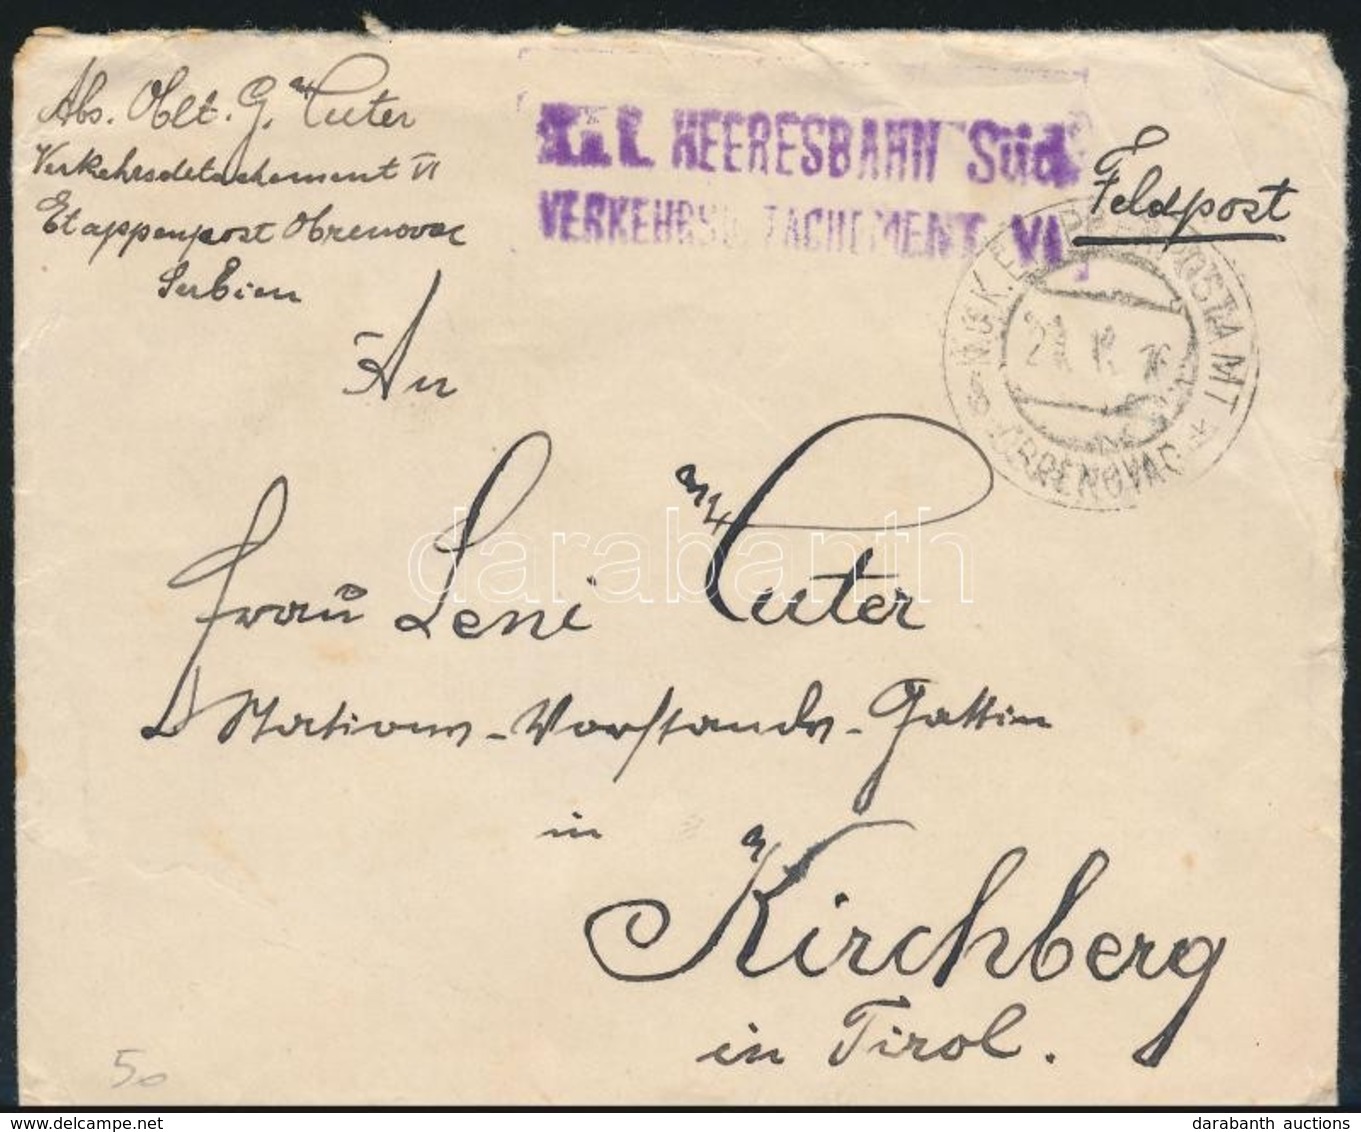 Abs. Oblt. G. Cuter
Verkehrsdetachement VI
Etappenpost Obrenovac
Serbien
K.u.K. HEERESBAHN Süd
VERKEHRSDETACHEMENT VI.
Feldpost
K.u.K. ETAPPENPOSTAMT
OBRENOVAC
An
Frau Leni Cuter
Stations-Vorstands-Gattin
in
Kirchberg
in Tirol.
50
darabanth
darabanth auctions